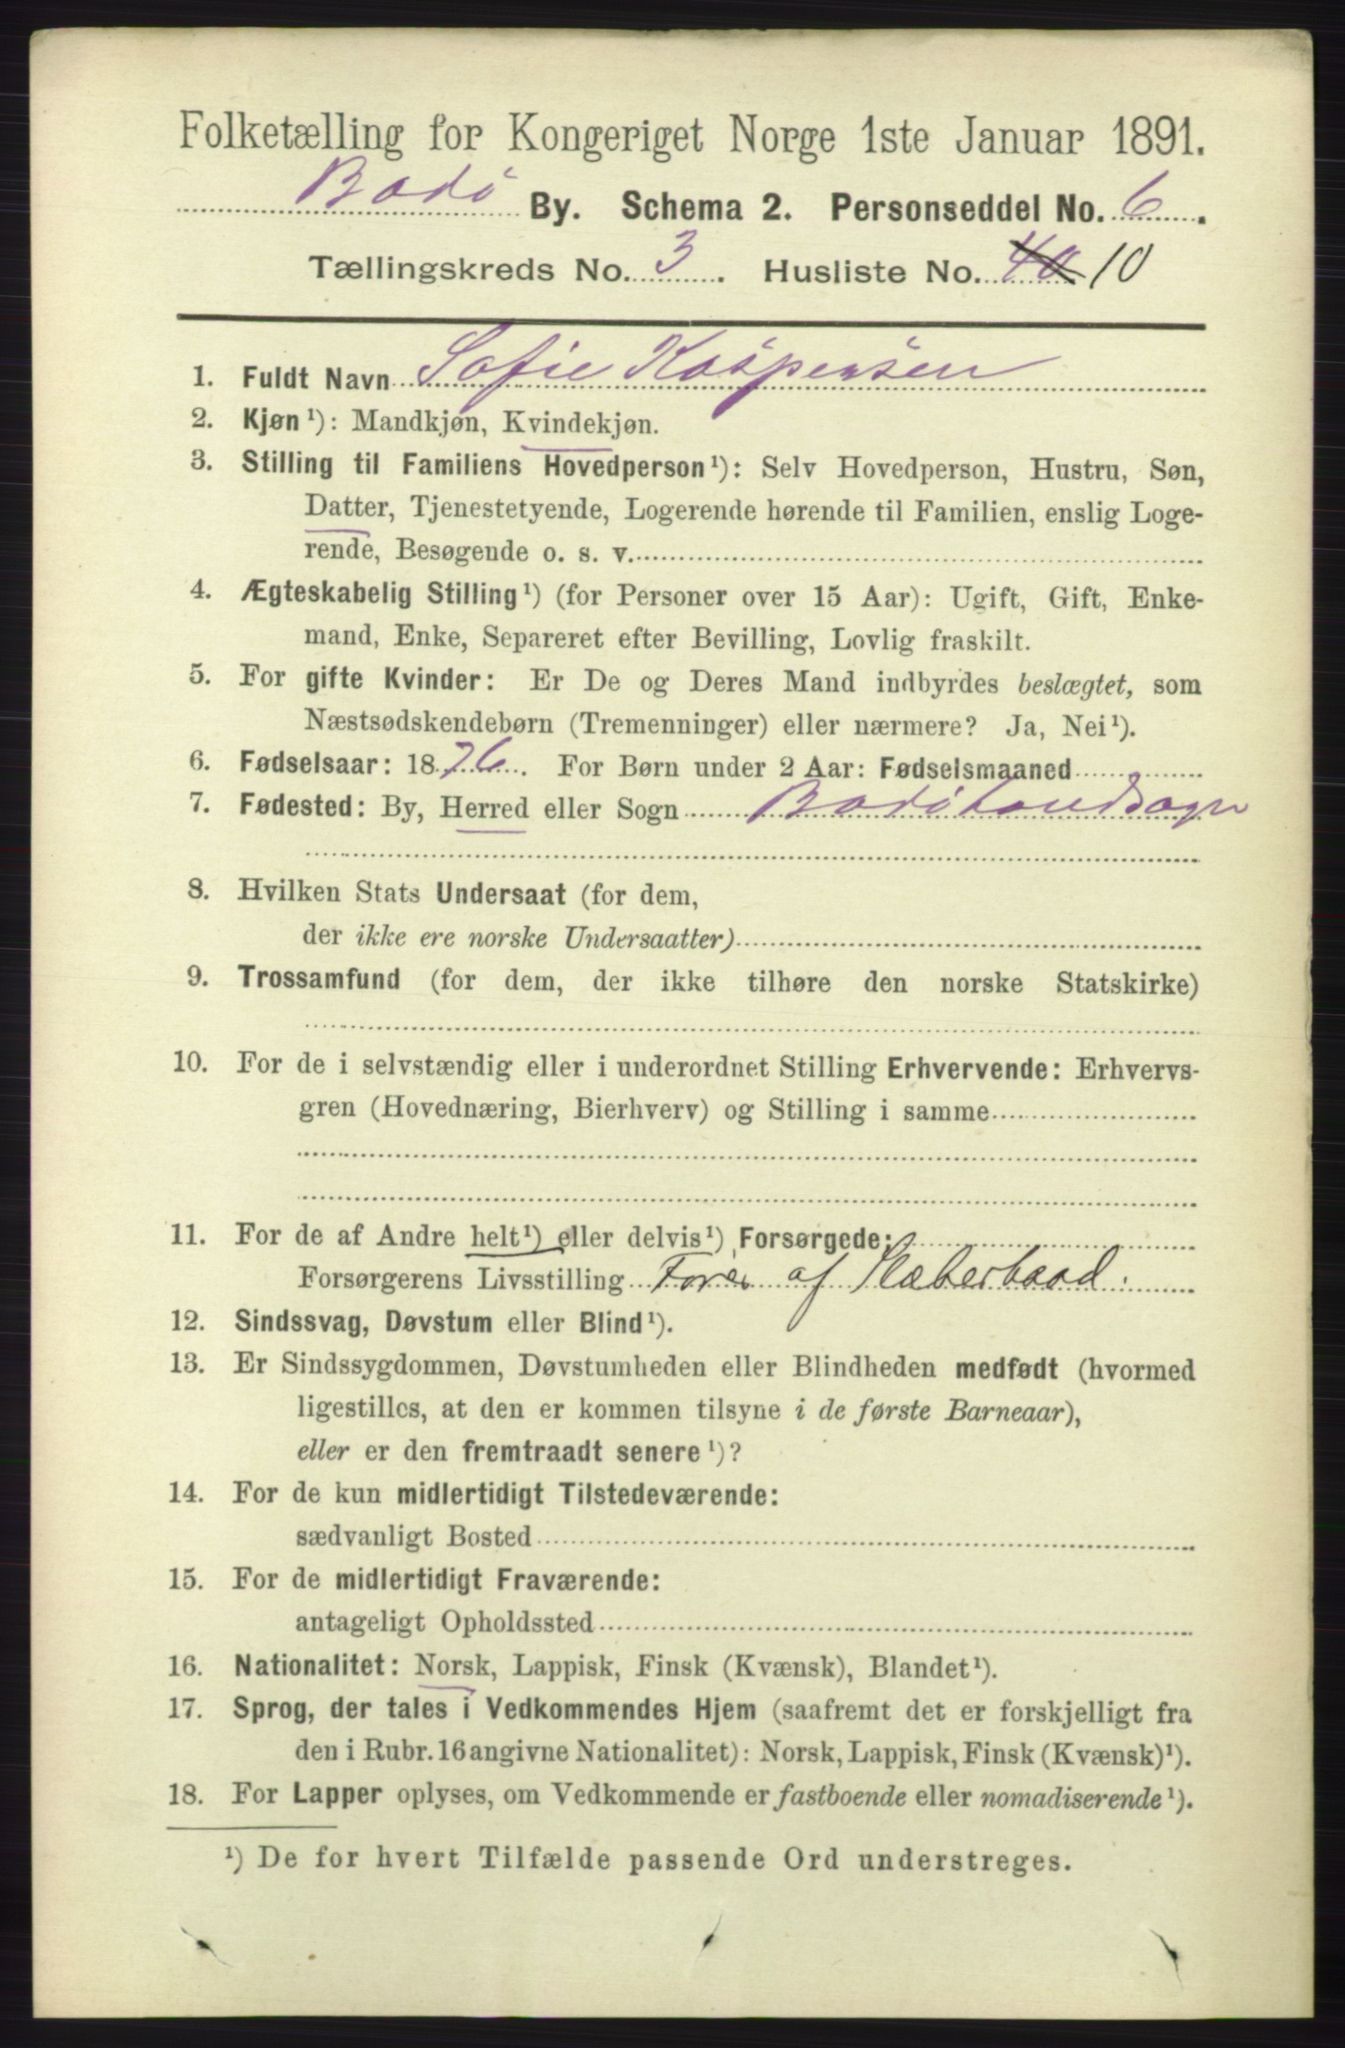 Folketælling for Kongeriget Norge 1ste Januar 1891.
Bodö By. Schema 2. Personseddel No. 6.
Tællingskreds No. 3. Husliste No. 40 10
1. Fuldt Navn Sofie Kaspersen
2. Kjøn¹): Mandkjøn, Kvindekjøn.
3. Stilling til Familiens Hovedperson¹): Selv Hovedperson, Hustru, Søn,
Datter, Tjenestetyende, Logerende hørende til Familien, enslig Loge-
rende, Besøgende o. s. v.
4. Ægteskabelig Stilling¹) (for Personer over 15 Aar): Ugift, Gift, Enke-
mand, Enke, Separeret efter Bevilling, Lovlig fraskilt.
5. For gifte Kvinder: Er De og Deres Mand indbyrdes beslægtet, som
Næstsødskendebørn (Tremenninger) eller nærmere? Ja, Nei¹).
6. Fødselsaar: 1876. For Børn under 2 Aar: Fødselsmaaned
7. Fødested: By, Herred eller Sogn Bodö Landsogn
8. Hvilken Stats Undersaat (for dem,
der ikke ere norske Undersaatter)
9. Trossamfund (for dem, der ikke tilhøre den norske Statskirke)
10. For de i selvstændig eller i underordnet Stilling Erhvervende: Erhvervs-
gren (Hovednæring, Bierhverv) og Stilling i samme
11. For de af Andre helt¹) eller delvis¹) Forsørgede:
Forsørgerens Livsstilling af
12. Sindssvag, Døvstum eller Blind¹).
13. Er Sindssygdommen, Døvstumheden eller Blindheden medfødt (hvormed
ligestilles, at den er kommen tilsyne i de første Barneaar),
eller er den fremtraadt senere¹)?
14. For de kun midlertidigt Tilstedeværende:
sædvanligt Bosted
15. For de midlertidigt Fraværende:
antageligt Opholdssted
16. Nationalitet: Norsk, Lappisk, Finsk (Kvænsk), Blandet¹).
17. Sprog, der tales i Vedkommendes Hjem (saafremt det er forskjelligt fra
den i Rubr. 16 angivne Nationalitet): Norsk, Lappisk, Finsk (Kvænsk)¹).
18. For Lapper oplyses, om Vedkommende er fastboende eller nomadiserende¹).
¹) De for hvert Tilfælde passende Ord understreges.